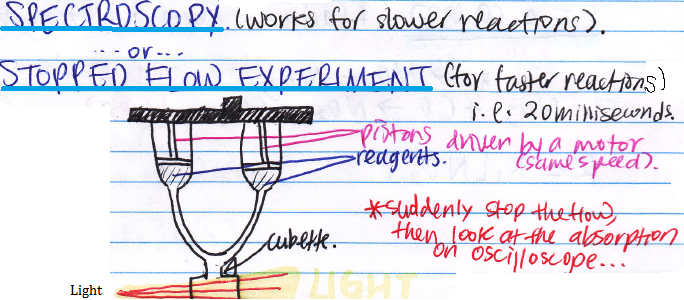 SPECTROSCOPY. (works for slower reactions).
... or...
STOPPED FLOW EXPERIMENT (for faster reactions)
i.e. 20 milliseconds.
pistons driven by a motor
(same speed).
reagents.
*suddenly stop the flow,
then look at the absorption
on oscilloscope...
cubette.
Light
LIGHT